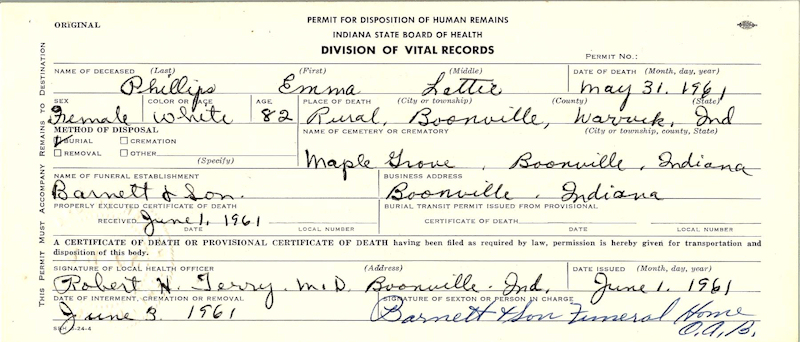 ORIGINAL
PERMIT FOR DISPOSITION OF HUMAN REMAINS
INDIANA STATE BOARD OF HEALTH
DIVISION OF VITAL RECORDS
PERMIT NO.:
THIS PERMIT MUST ACCOMPANY REMAINS TO DESTINATION
NAME OF DECEASED (Last) (First) (Middle) DATE OF DEATH (Month, day, year)
Phillips Emma Lettie May 31. 1961
SEX COLOR OR RACE AGE PLACE OF DEATH (City or township) (County) (State)
Female White 82 Rural, Boonville, Warrick, Ind
METHOD OF DISPOSAL NAME OF CEMETERY OR CREMATORY (City or township, county, State)
BURIAL CREMATION
REMOVAL OTHER
(Specify)
Maple Grove, Boonville, Indiana
NAME OF FUNERAL ESTABLISHMENT BUSINESS ADDRESS
Barnett & Son. Boonville, Indiana
PROPERLY EXECUTED CERTIFICATE OF DEATH BURIAL TRANSIT PERMIT ISSUED FROM PROVISIONAL
RECEIVED June 1, 1961 CERTIFICATE OF DEATH-
DATE LOCAL NUMBER DATE LOCAL NUMBER
A CERTIFICATE OF DEATH OR PROVISIONAL CERTIFICATE OF DEATH having been filed as required by law, permission is hereby given for transportation and
disposition of this body.
SIGNATURE OF LOCAL HEALTH OFFICER (Address) DATE ISSUED (Month, day, year)
Robert H. Terry. M.D. Boonville. Ind. June 1. 1961
DATE OF INTERMENT, CREMATION OR REMOVAL SIGNATURE OF SEXTON OR PERSON IN CHARGE
June 3. 1961 Barnett & Son Funeral Home
O.A.B.